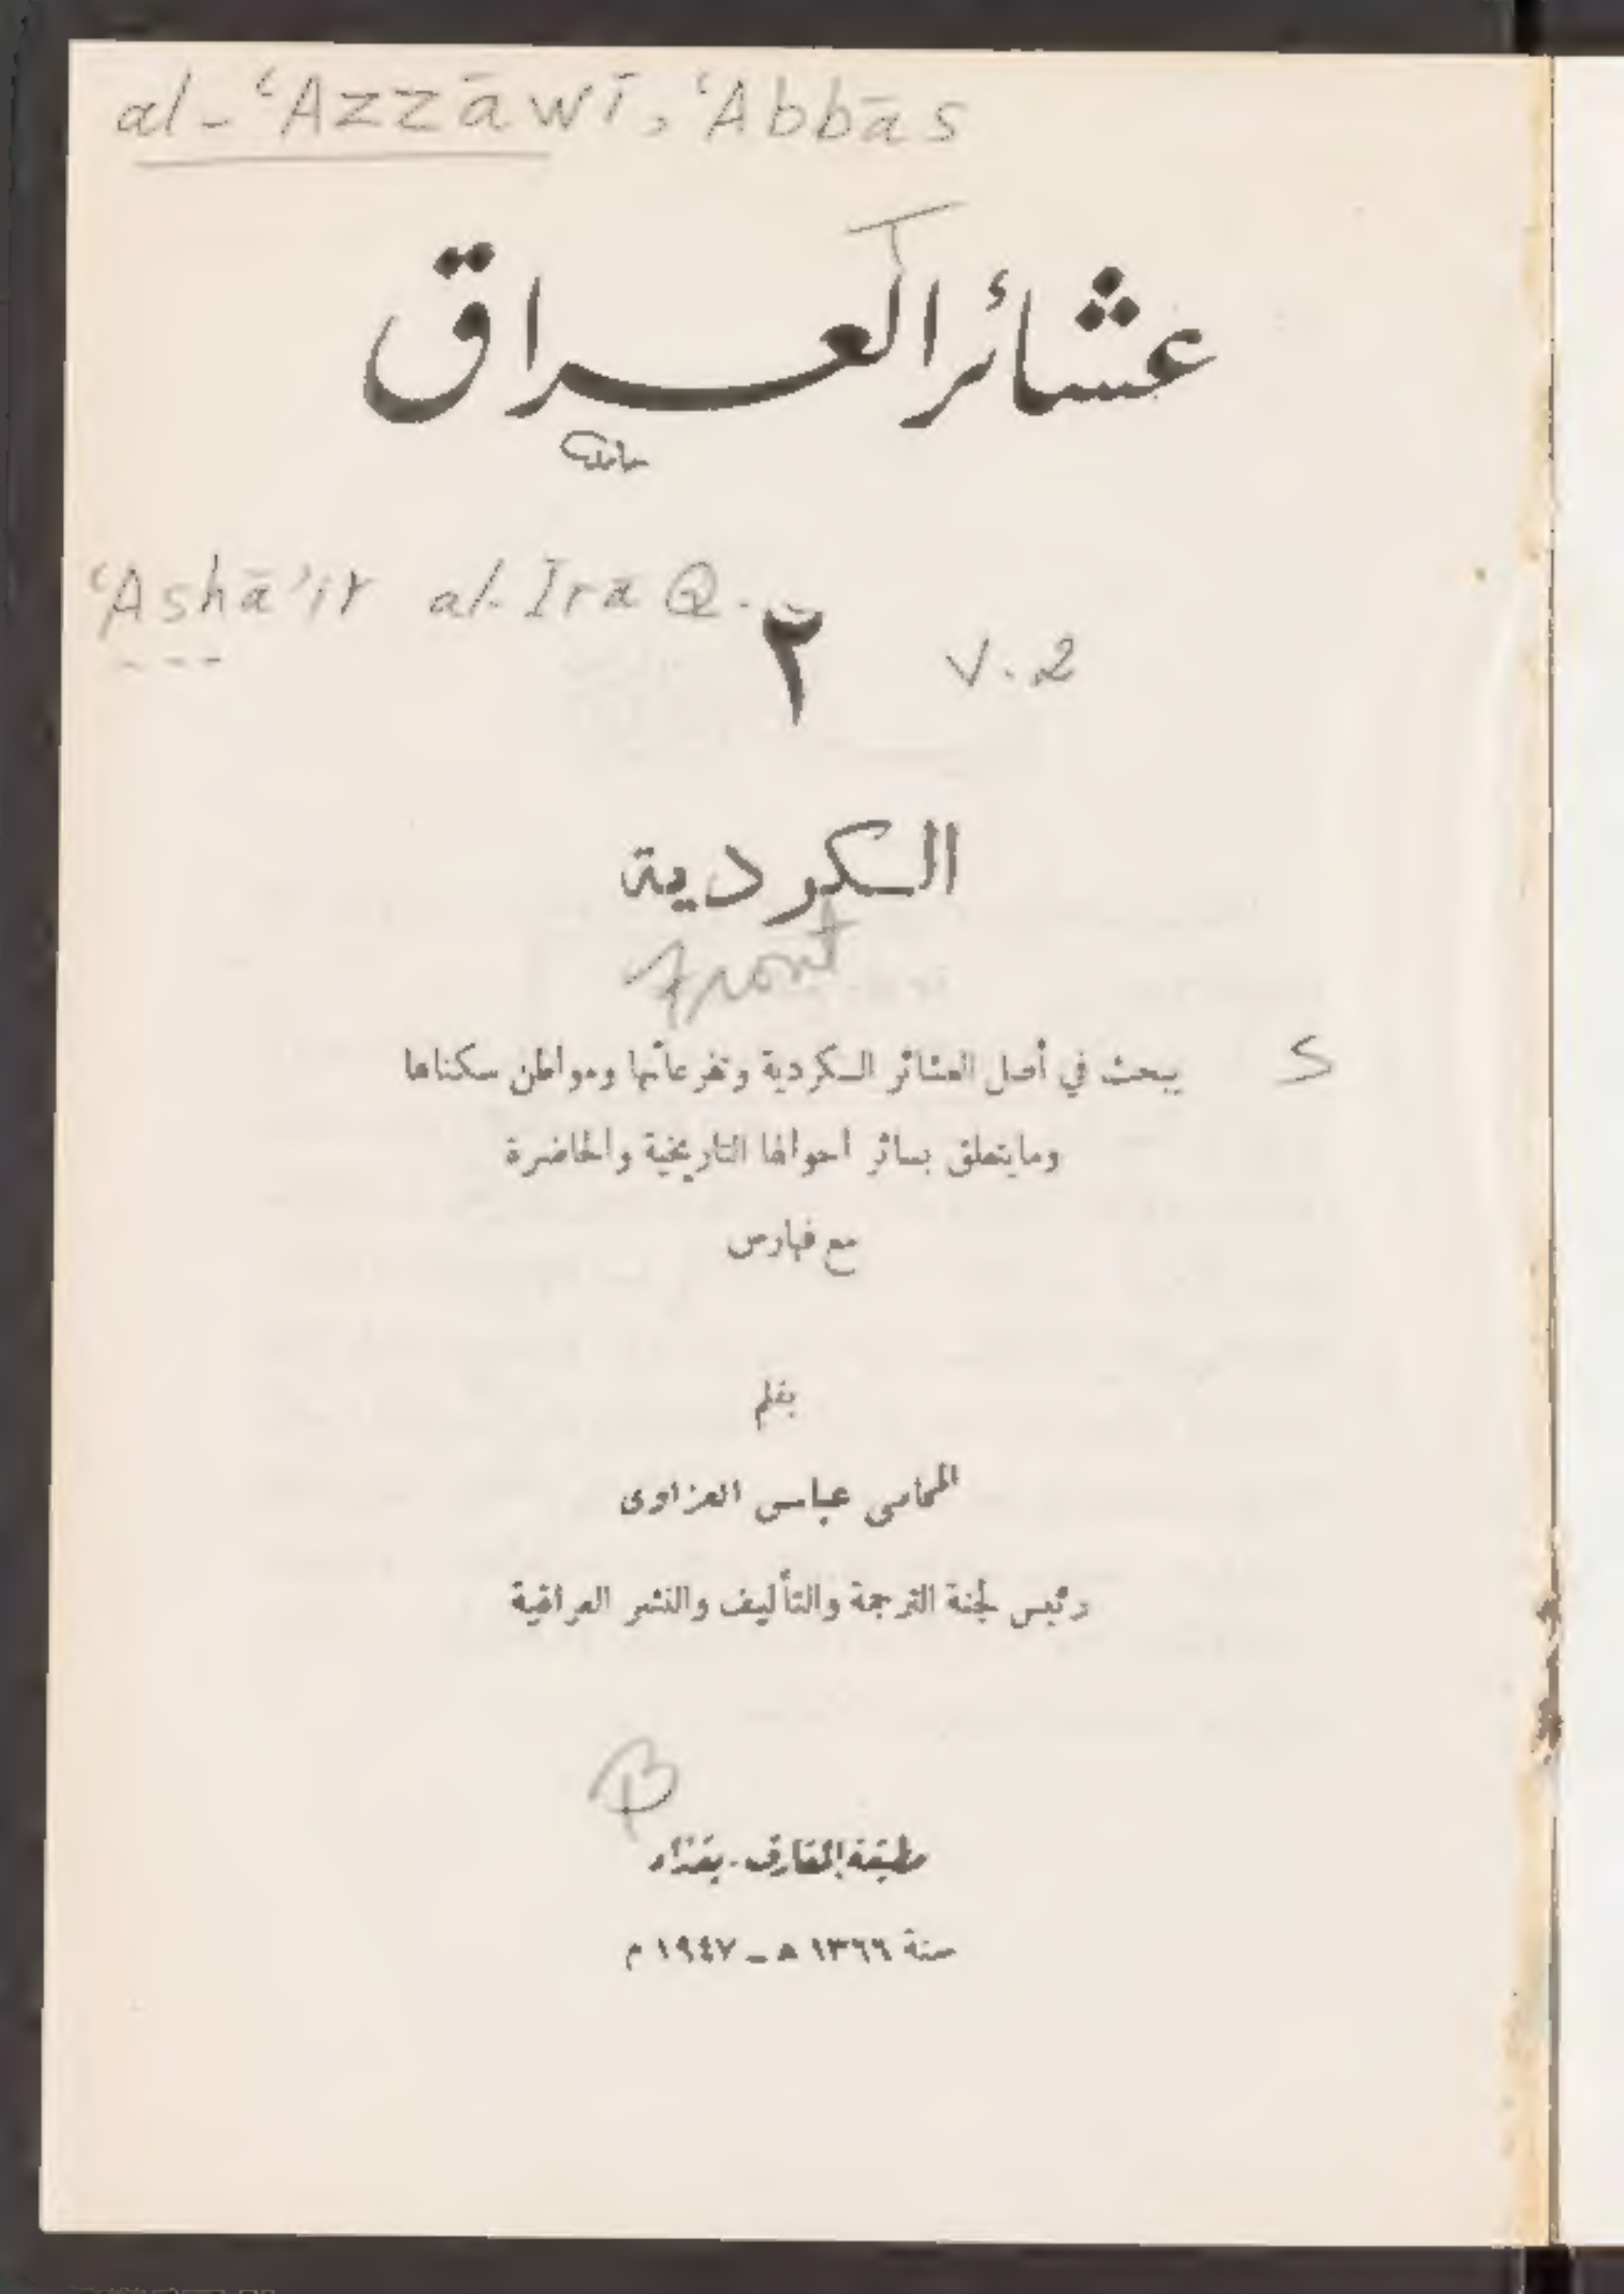 al-ʿAzzāwī, ʿAbbās
عشائر العراق
ʿAshāʾir al-Īrāq.
٢ v.2
الكردية
Front
يبحث في أصل العشائر الكردية وتفرعاتها ومواطن سكناها S
ومايتعلق بسائر احوالها التاريخية والحاضرة
مع فهارس
بقلم
المحامى عباس العزاوى
رئيس لجنة الترجمة والتأليف والنشر العراقية
B
مطبعة المعارف - بغداد
سنة ١٣٦٦ هـ ـ ١٩٤٧ م